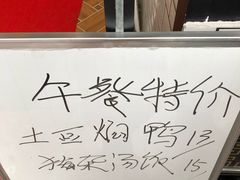 午餐特价
土豆焖鸭 13
猪杂汤饭 15